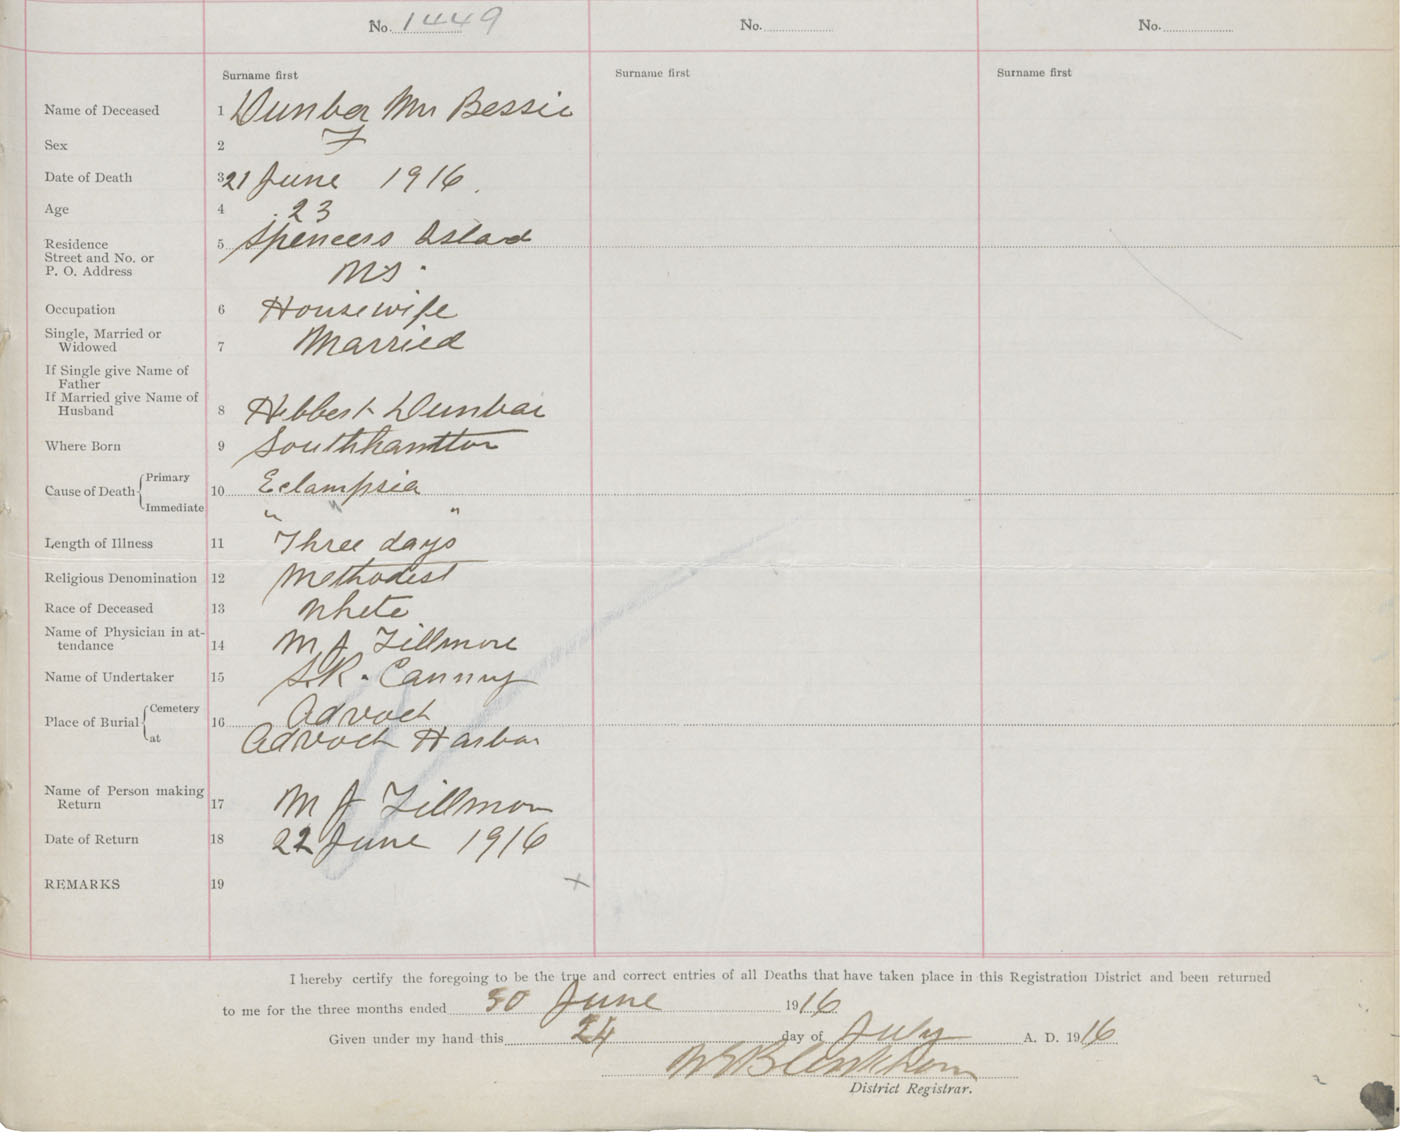 No. 1449
No.
No.
Surname first
Surname first
Surname first
Name of Deceased 1 Dunbar Mrs Bessie
Sex 2 F
Date of Death 3 21 June 1916.
Age 4 23
Residence 5 Spencers Island
Street and No. or
P. O. Address NS.
Occupation 6 Housewife
Single, Married or
Widowed 7 Married
If Single give Name of
Father
If Married give Name of
Husband 8 Hibbert Dunbar
Where Born 9 Southhamtton
Cause of Death Primary 10 Eclampsia
Immediate " " "
Length of Illness 11 Three days
Religious Denomination 12 Methodist
Race of Deceased 13 White
Name of Physician in at-
tendance 14 M J Fillmore
Name of Undertaker 15 S.R. Canning
Place of Burial Cemetery 16 Advoct
at Advoct Harbor
Name of Person making
Return 17 M J Fillmore
Date of Return 18 22 June 1916
REMARKS 19 x
I hereby certify the foregoing to be the true and correct entries of all Deaths that have taken place in this Registration District and been returned
to me for the three months ended 30 June 1916
Given under my hand this 24 day of July A. D. 1916
Blenkhorn
District Registrar.